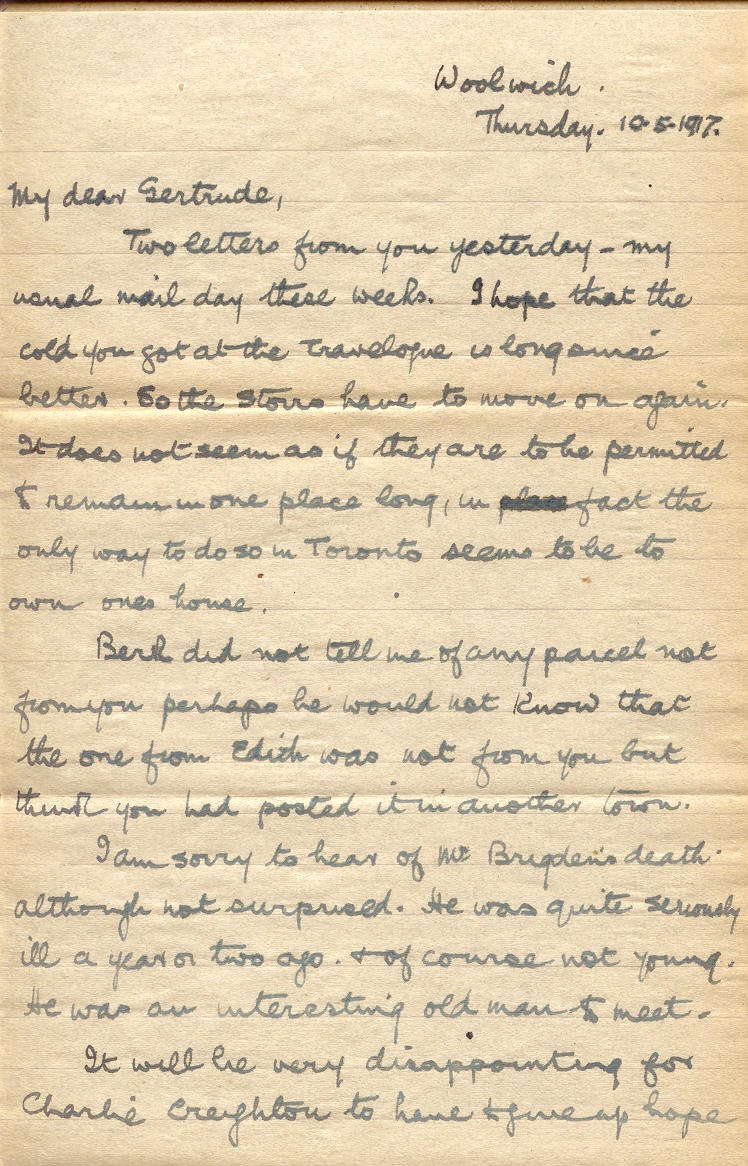 Woolwich.
Thursday. 10-5-1917.
My dear Gertrude,
Two letters from you yesterday – my
usual mail day these weeks. I hope that the
cold you got at the Travelogue is long since
better. So the Storrs have to move on again.
It does not seem as if they are to be permitted
to remain in one place long, in place fact the
only way to do so in Toronto seems to be to
own ones house.
did not tell me of any parcel not
from you perhaps he would not know that
the one from Edith was not from you but
think you had posted it in another town.
I am sorry to hear of Mr Brigden's death.
although not surprised. He was quite seriously
ill a year or two ago. & of course not young.
He was an interesting old man to meet.
It will be very disappointing for
Charlie Creighton to have to give up hope